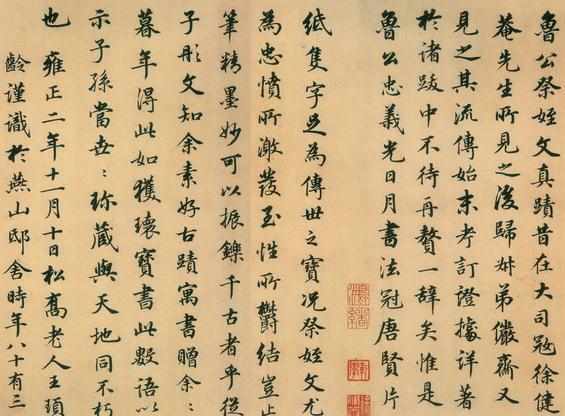 魯公祭姪文真蹟昔在大司寇徐健
菴先生所見之後歸舛弟儼齋又
見之其流傳始末考訂證據詳著
於諸跋中不待再贅一辭矣惟是
魯公忠義光日月書法冠唐賢片
紙隻字足為傳世之寶况祭姪文尤
為忠憤所激發至性所鬱結豈止
筆精墨妙可以振鑠千古者乎從
子彤文知余素好古蹟寓書贈余〻
暮年得此如獲瓌寶書此數語以
示子孫當世〻珍藏與天地同不朽
也雍正二年十一月十日松喬老人王頊
齡謹識於燕山邸舍時年八十有三